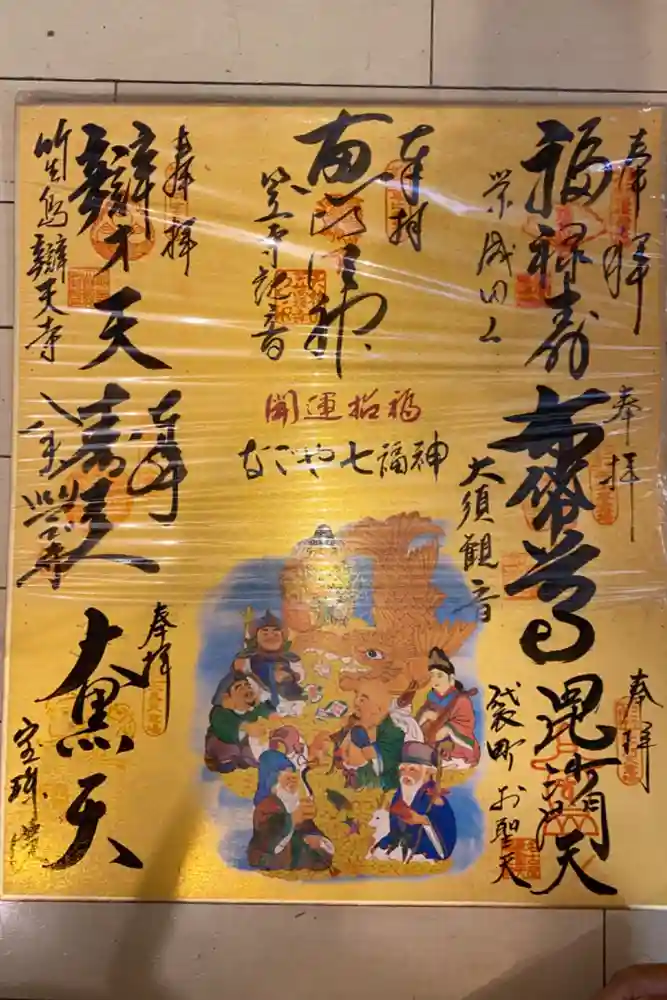 奉拝
福禄寿
栄成田山
奉拝
恵比須神
笠寺観音
奉拝
辯才天
竹生島辯天寺
開運招福
なごや七福神
奉拝
布袋尊
大須観音
奉拝
寿老人
八事山興正寺
奉拝
毘沙門天
袋町お聖天
奉拝
大黒天
宝珠院